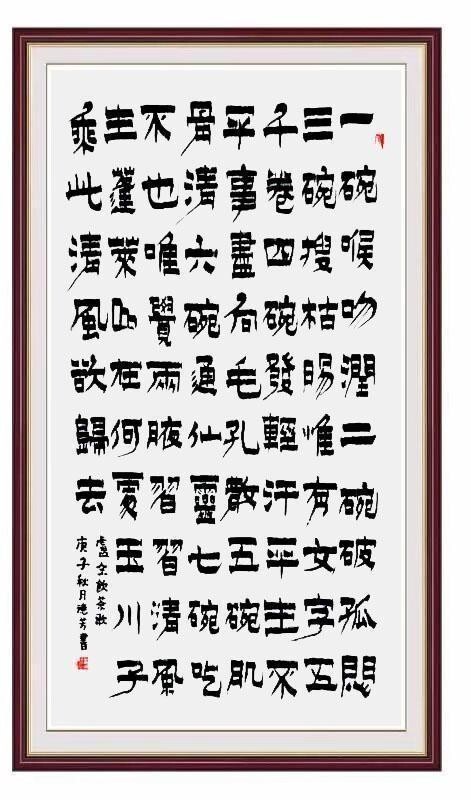 一碗喉吻潤二碗破孤悶
三碗搜枯腸惟有文字五
千卷四碗發輕汗平生不
平事盡向毛孔散五碗肌
骨清六碗通仙靈七碗吃
不也唯覺兩腋習習清風
生蓬萊山在何處玉川子
乘此清風欲歸去
盧仝飲茶歌
庚子秋月德芳書